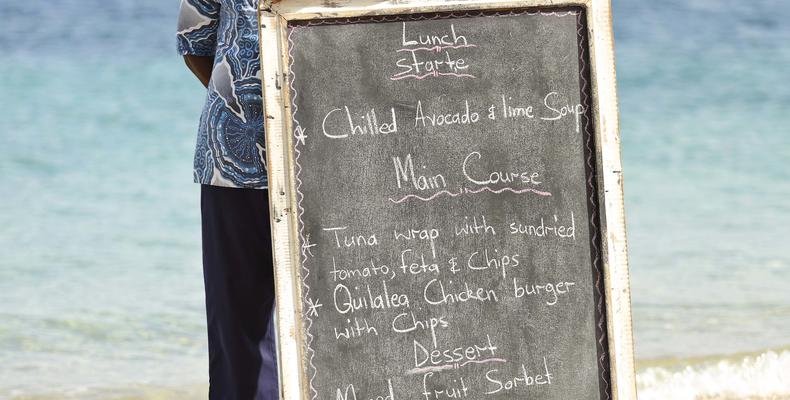 Lunch
starte
* Chilled Avocado & lime Soup
Main Course
* Tuna wrap with sundried
tomato, feta & Chips
* Quilalea Chicken burger
with Chips
Dessert
fruit Sorbet